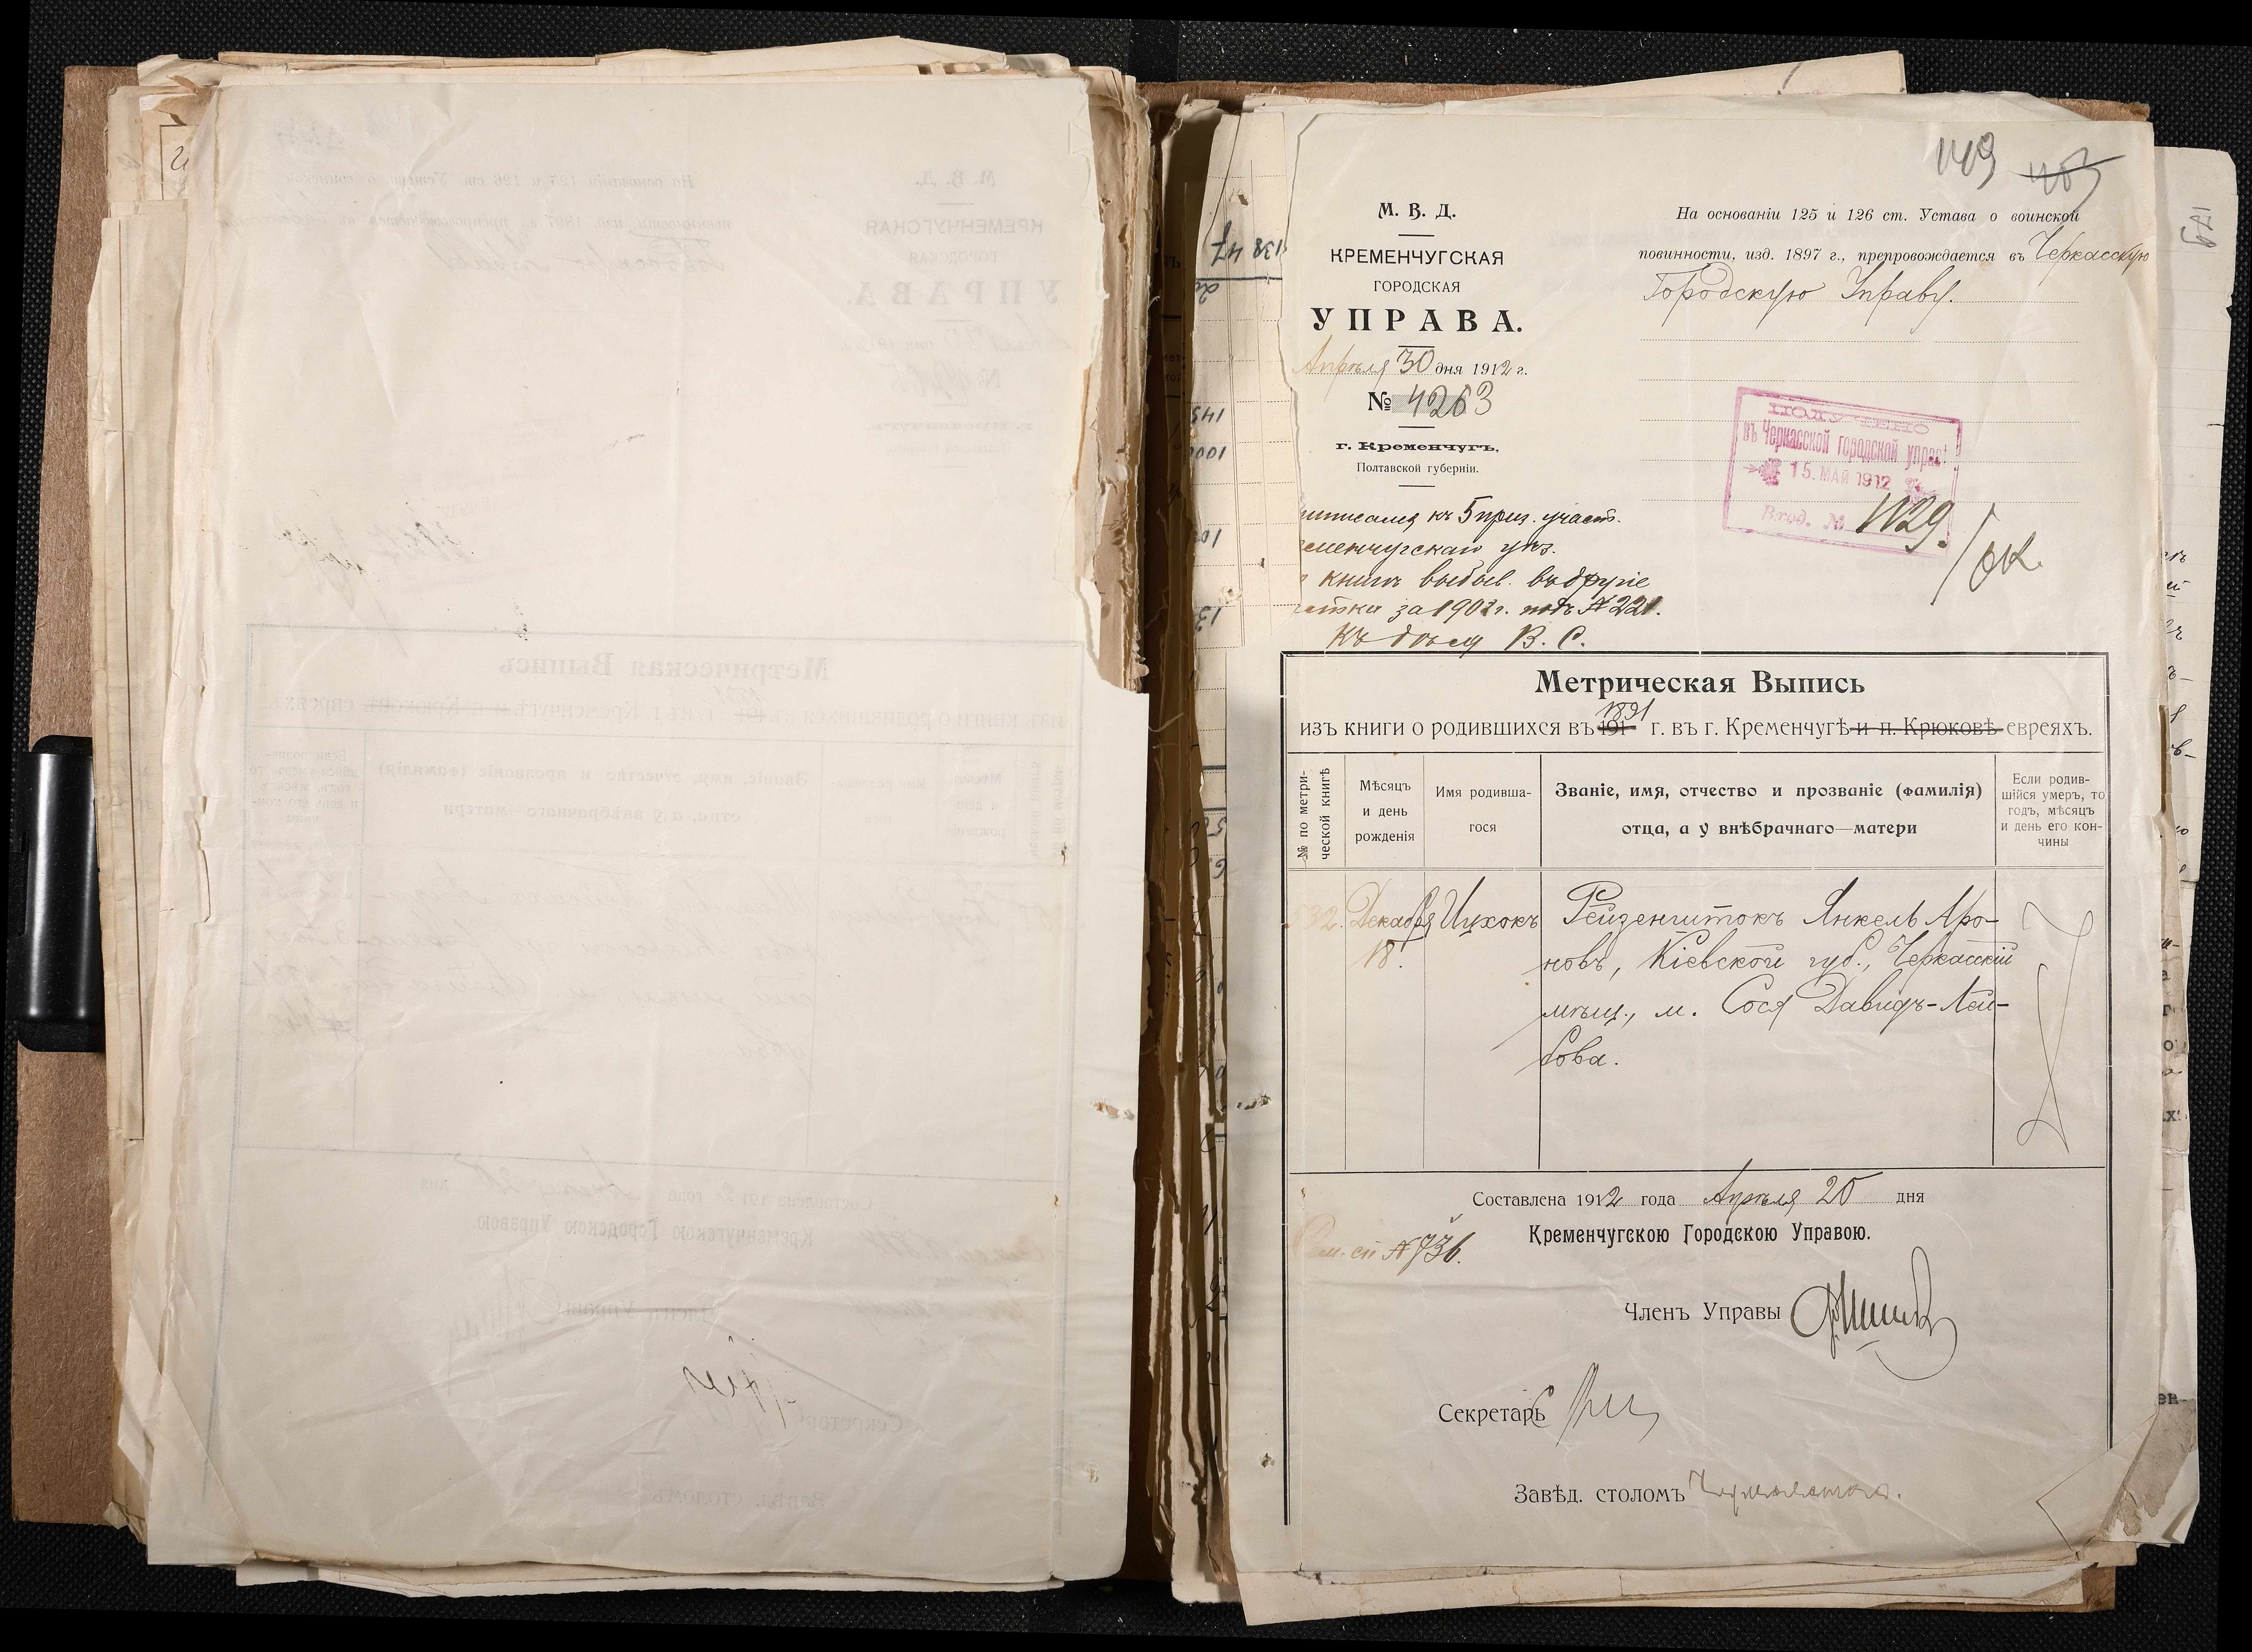 149 
М. В. Д.
КРЕМЕНЧУГСКАЯ
ГОРОДСКАЯ
УПРАВА.
Апрѣля 30 дня 1912 г.
№ 4263
г. Кременчугъ,
Полтавской губерніи.
На основаніи 125 и 126 ст. Устава о воинской
повинности, изд. 1897 г., препровождается въ Черкасскую
Городскую Управу.
ПОЛУЧЕНО
въ Черкасской городской управѣ
15. МАЙ 1912
Вход. № 1129.
къ 5 приз. участ.
еменчугскаго уѣз.
книгѣ выбыв. въ другіе
за 1902 г. подъ № 221.
Къ дѣлу В. С.
Метрическая Выпись
изъ книги о родившихся въ 191 1891 г. въ г. Кременчугѣ и п. Крюковѣ евреяхъ.
№ по метрической книгѣ
Мѣсяцъ
и день
рожденія
Имя родивша-
гося
Званіе, имя, отчество и прозваніе (фамилія)
отца, а у внѣбрачнаго—матери
Если родив-
шійся умеръ, то
годъ, мѣсяцъ
и день его кон-
чины
532. Декабря Ицхокъ Рейзенштокъ Янкель Аро-
18. новъ, Кіевской губ., Черкасскій
мѣщ., м. Сося Давидъ-Лей-
бова.
Составлена 1912 года Апрѣля 20 дня
Кременчугскою Городскою Управою.
№ 736.
Членъ Управы
Секретарь
Завѣд. столомъ